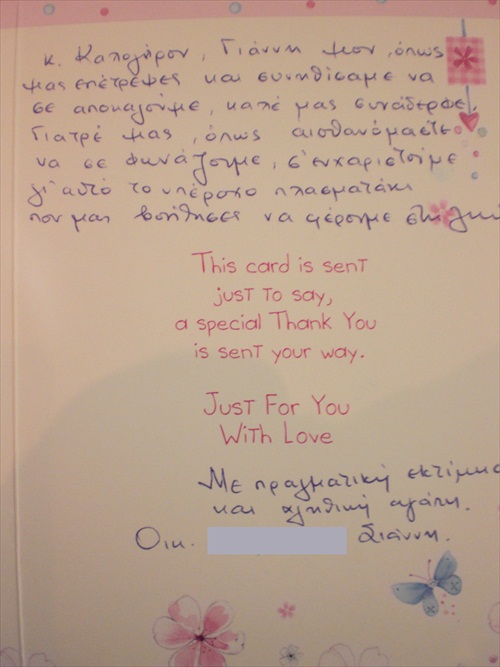 κ. Καπαγιάρον, Γιάννη μου, όπως
μας επέτρεψες και συνηθίσαμε να
σε αποκαλούμε, καλέ μας συνάδερφε,
Γιατρέ μας, όπως αισθανόμαστε
να σε φωνάζουμε, σ' ευχαριστούμε
γι' αυτό το υπέροχο πλασματάκι
που μας βοήθησες να φέρουμε στη
This card is sent
just to say,
a special Thank You
is sent your way.
Just For You
With Love
Με πραγματική
και αληθινή αγάπη.
Οικ. Σιάννη.